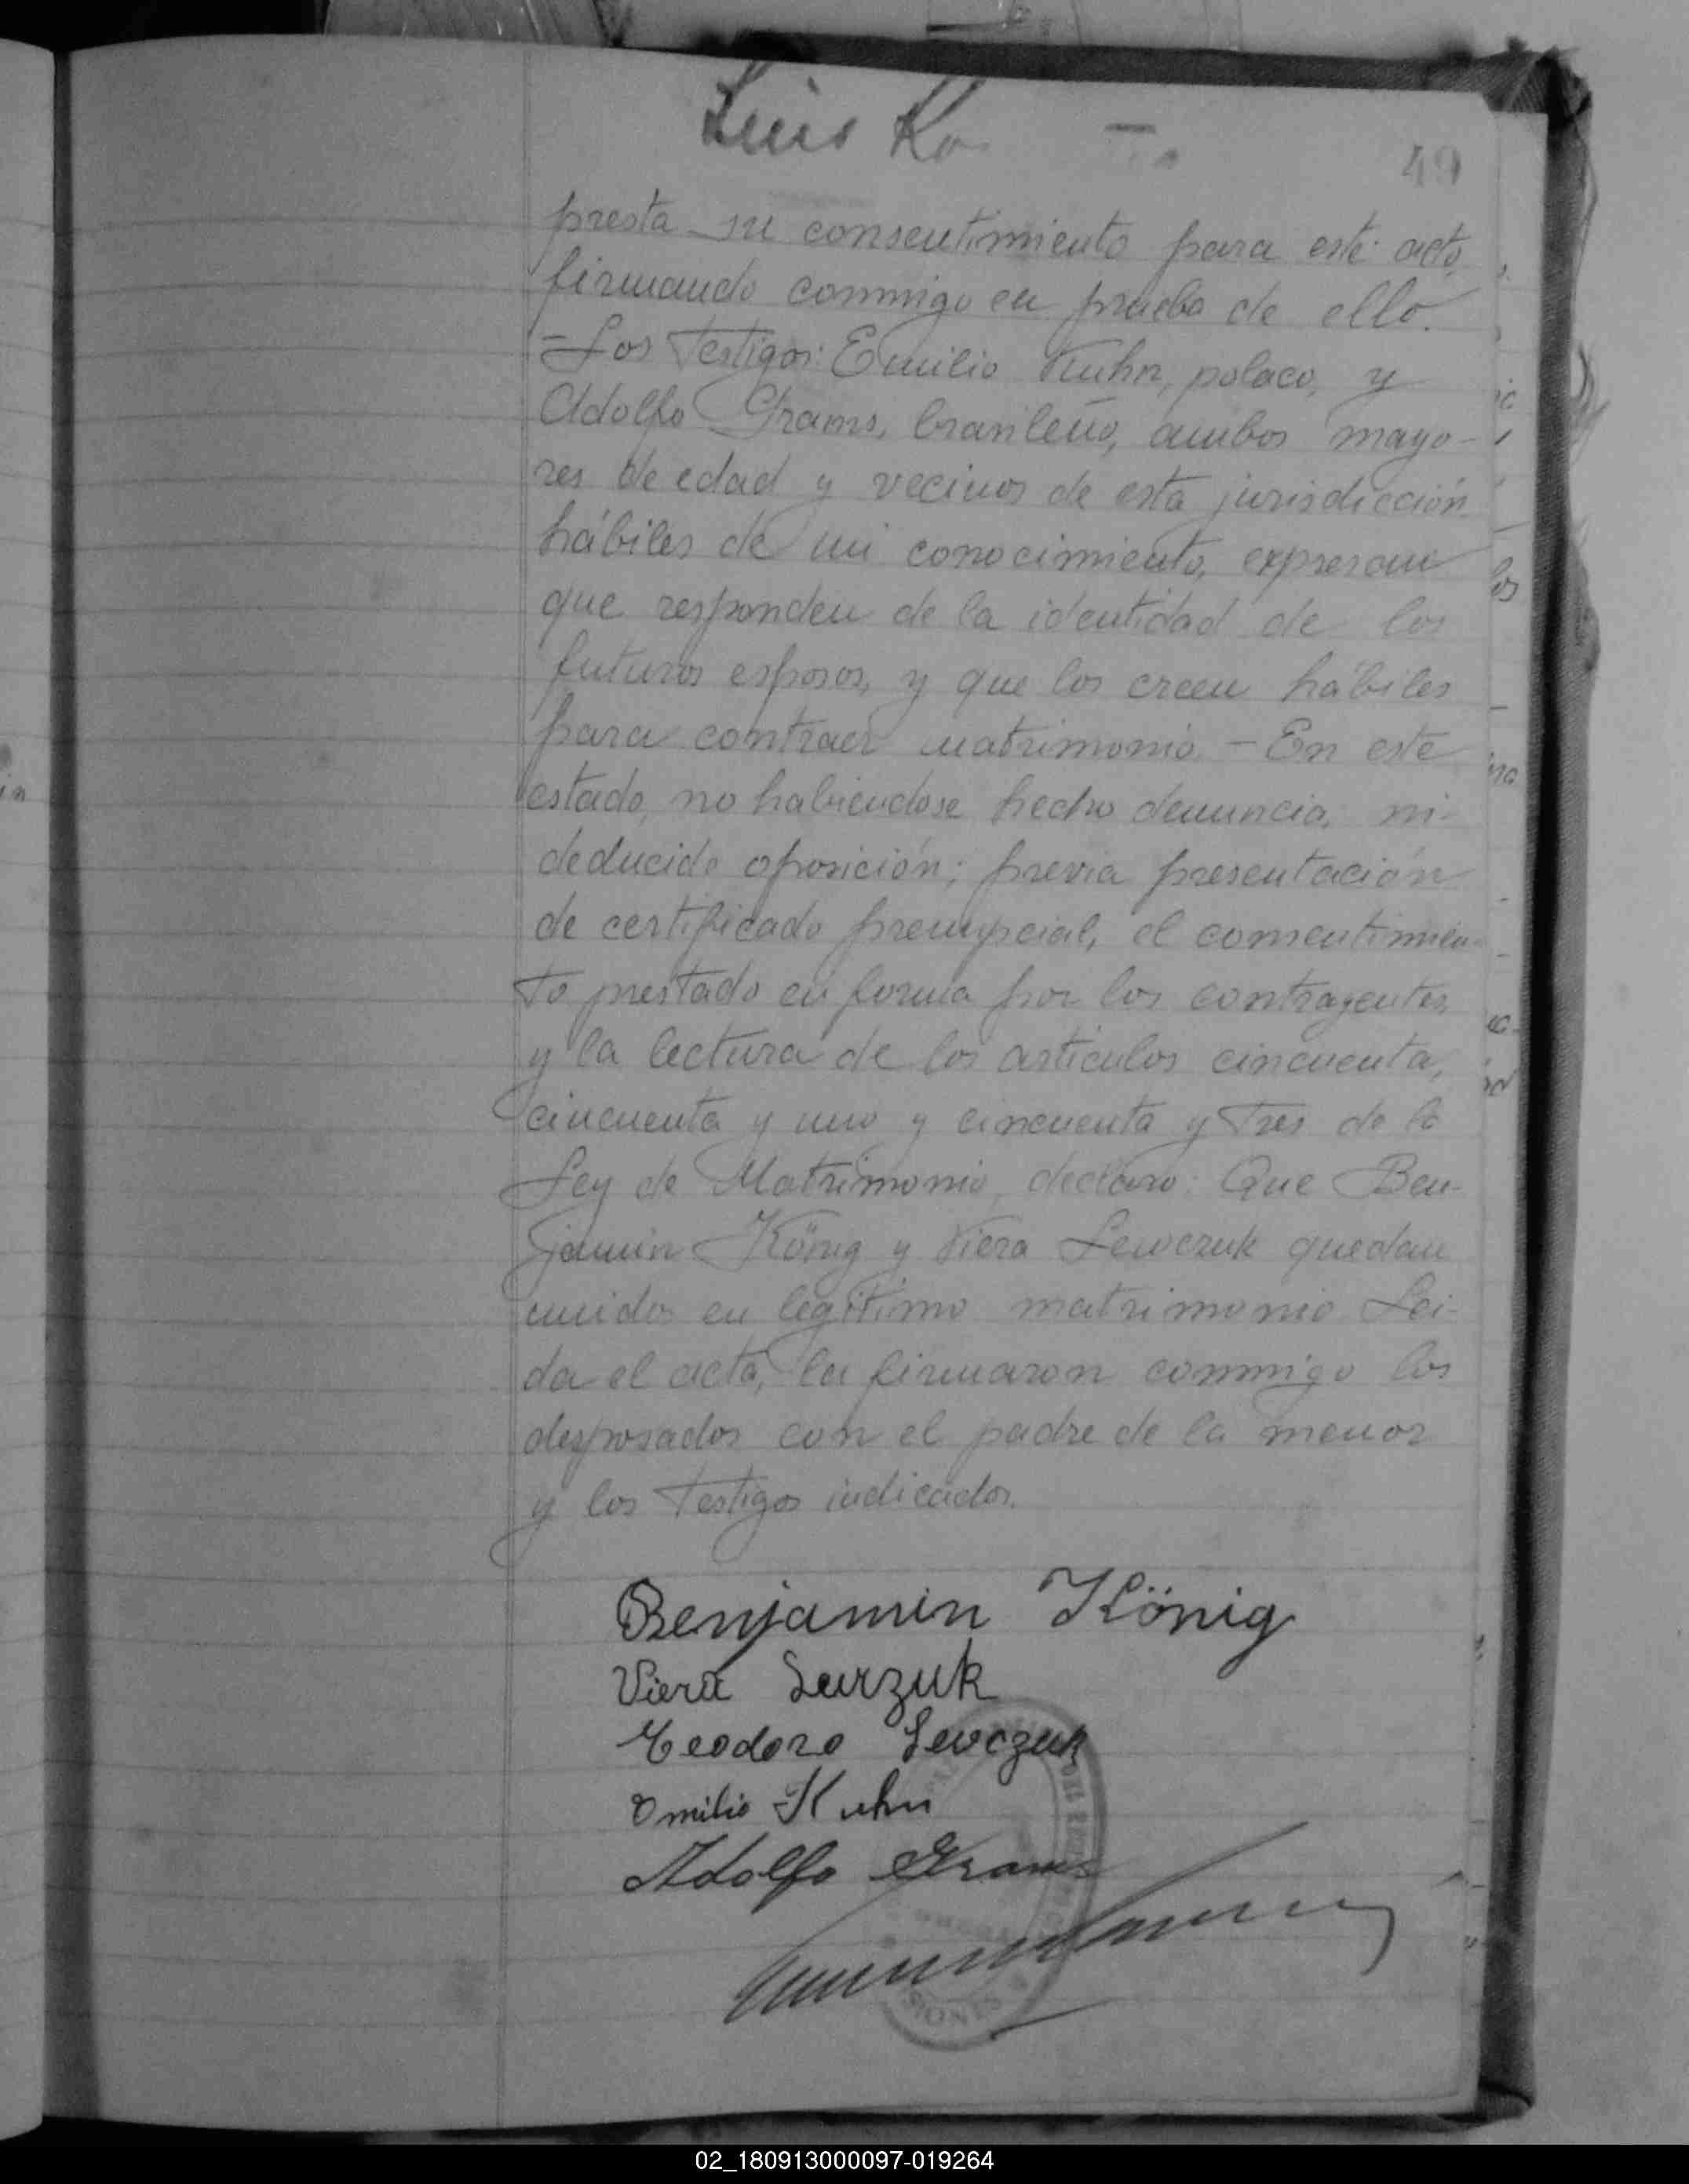 Luis
49
presta su consentimiento para este acto,
firmando conmigo en prueba de ello.
-Los testigos: Emilio Kuhn, polaco, y
Adolfo Grams, brasileño, ambos mayo-
res de edad y vecinos de esta jurisdicción
hábiles de mi conocimiento, expresan
que responden de la identidad de los
futuros esposos, y que los creen hábiles
para contraer matrimonio. - En este
estado, no habiendose hecho denuncia, ni
deducido oposición; previa presentación
de certificado prenupcial, el consentimien-
to prestado en forma por los contrayentes,
y la lectura de los artículos cincuenta,
cincuenta y uno y cincuenta y tres de la
Ley de Matrimonio, declaro: Que Ben-
jamin König y Viera Lewczuk quedan
unidos en legítimo matrimonio Lei-
da el acta, la firmaron conmigo los
desposados con el padre de la menor
y los testigos indicados.
Benjamin König
Viera Lewzuk
Teodoro Lewczuk
Emilio Kuhn
Adolfo Grams
SIONES
02_180913000097-019264